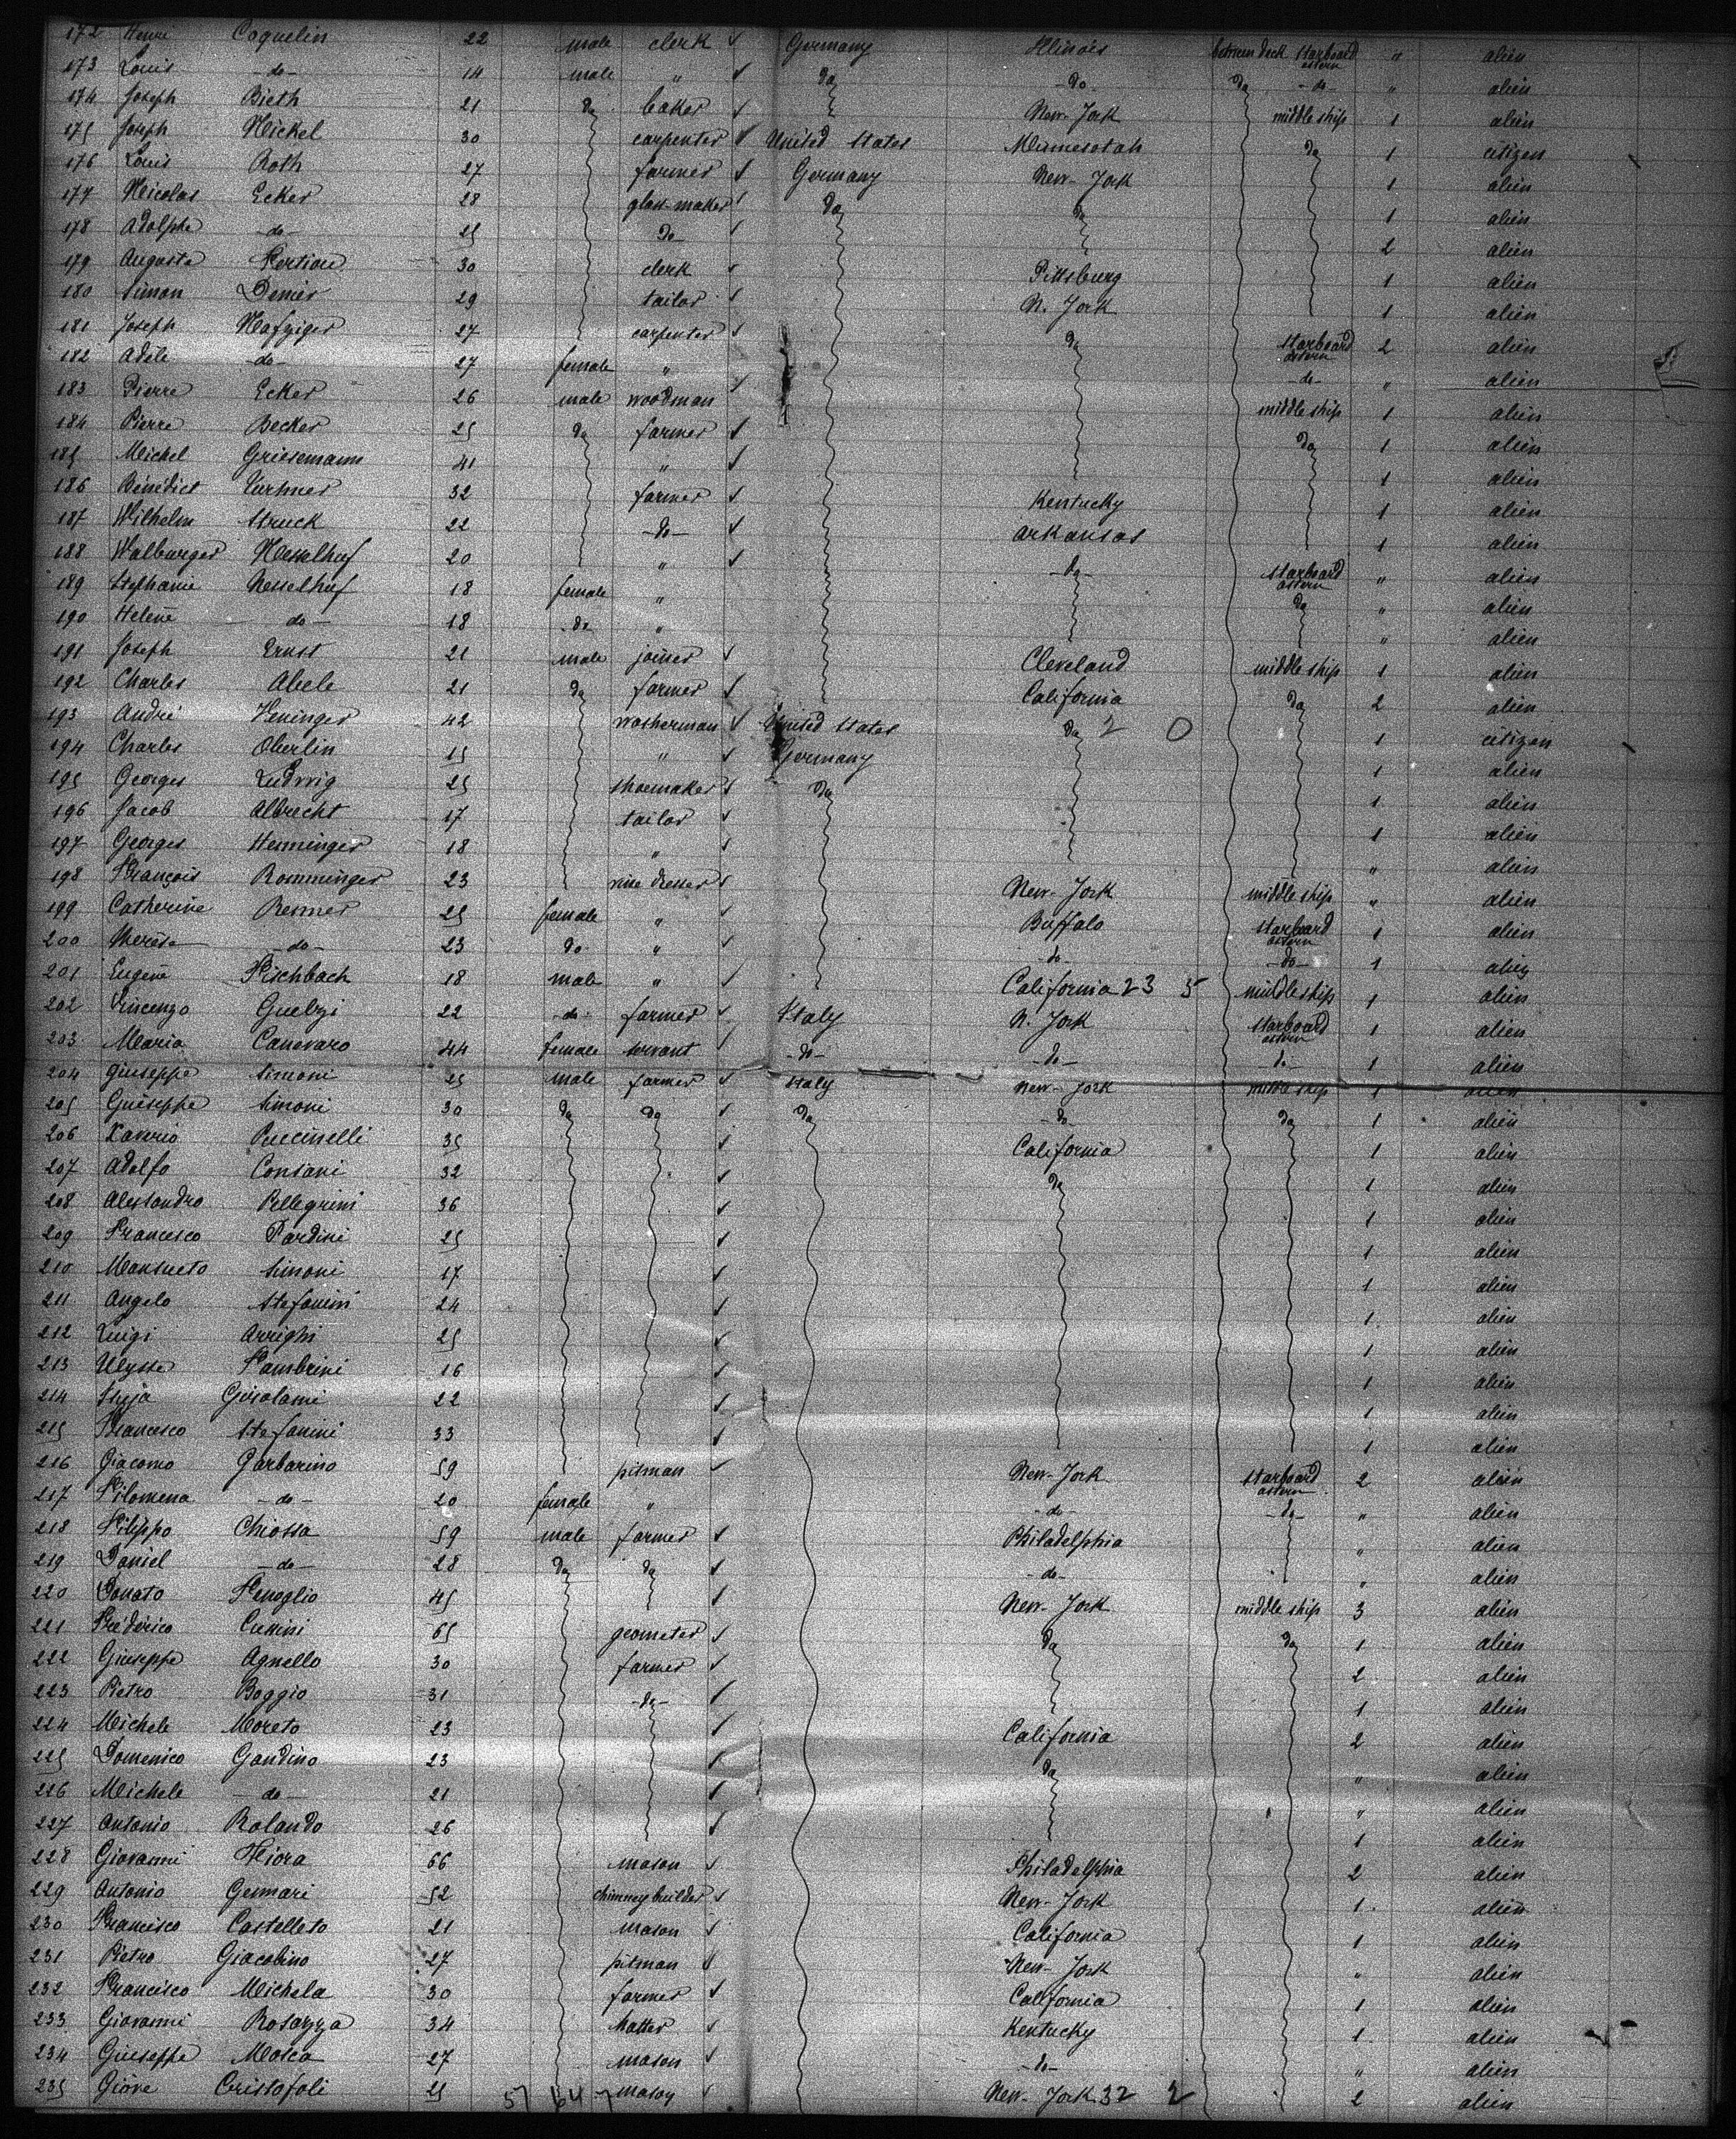 172 Henri Coquelin 22 male clerk ✓ Germany Illinois between deck starboard astern " alien
173 Louis -do- 14 male " ✓ do -do- do -do- " alien
174 Joseph Bieth 21 do baker ✓ New-York middle ship 1 alien
175 Joseph Nickel 30 carpenter ✓ United States Minnesotah do 1 citizen
176 Louis Roth 27 farmer ✓ Germany New-York 1 alien
177 Nicolas Ecker 28 glass-maker ✓ do do 1 alien
178 Adolphe -do- 25 do ✓ 2 alien
179 Auguste 30 clerk ✓ Pittsburg 1 alien
180 Simon Demer 29 tailor ✓ N. York 1 alien
181 Joseph Nafziger 27 carpenter ✓ do starboard astern 2 alien
182 Adèle -do- 27 female " -do- " alien
183 Pierre Ecker 26 male woodman ✓ middle ship 1 alien
184 Pierre Becker 25 do farmer ✓ do 1 alien
185 Michel Griesemann 41 " ✓ 1 alien
186 Bénédict 32 farmer ✓ Kentucky 1 alien
187 Wilhelm Struck 22 -do- ✓ Arkansas 1 alien
188 Walburger Nesselhuf 20 " ✓ -do- starboard astern " alien
189 Stephanie Nesselhuf 18 female " do " alien
190 Helene -do- 18 -do- " " alien
191 Joseph Ernst 21 male joiner ✓ Cleveland middle ship 1 alien
192 Charles Abele 21 do farmer ✓ California do 2 alien
193 André Heninger 42 washerman ✓ United States do 2 0 1 citizen
194 Charles Oberlin 15 " ✓ Germany 1 alien
195 Georges Ludwig 25 shoemaker ✓ do 1 alien
196 Jacob Albrecht 17 tailor ✓ 1 alien
197 Georges Henninger 18 " ✓ " alien
198 François Romminger 23 vine dresser ✓ New-York middle ship " alien
199 Catherine Renner 25 female " ✓ Buffalo starboard astern 1 alien
200 Therèse -do- 23 do " ✓ -do- -do- 1 alien
201 Eugène Fischbach 18 male " ✓ California 23 5 middle ship 1 alien
202 Vincenzo Guelzi 22 -do- farmer ✓ Italy N. York starboard astern 1 alien
203 Maria Canevaro 44 female servant ✓ -do- -do- do 1 alien
204 Giuseppe Simoni 25 male farmer ✓ Italy New-York middle ship 1 alien
205 Guiseppe Simoni 30 do do ✓ do -do- do 1 alien
206 Xaverio Puccinelli 35 ✓ California 1 alien
207 Adolfo Consani 32 ✓ do 1 alien
208 Alessandro Pellegrini 36 ✓ 1 alien
209 Francesco Pardini 25 ✓ 1 alien
210 Mansueto Simoni 17 ✓ 1 alien
211 Angelo Stefanini 24 ✓ 1 alien
212 Luigi Arrighi 25 ✓ 1 alien
213 Ulysse Fambrini 16 ✓ 1 alien
214 Girolami 22 ✓ 1 alien
215 Francesco Stefanini 33 ✓ 1 alien
216 Giacomo Garbarino 59 pitman ✓ New-York starboard astern 2 alien
217 Filomena -do- 20 female " -do- -do- " alien
218 Filippo Chiossa 59 male farmer ✓ Philadelphia " alien
219 Daniel -do- 28 do do ✓ -do- " alien
220 Donato Fenoglio 45 ✓ New-York middle ship 3 alien
221 Fréderico 65 geometer ✓ do do 1 alien
222 Giuseppe Agnello 30 farmer ✓ 2 alien
223 Pietro Boggio 31 -do- ✓ 1 alien
224 Michele Moreto 23 ✓ California 2 alien
225 Domenico Gandino 23 ✓ do " alien
226 Michele -do- 21 ✓ " alien
227 Antonio Rolando 26 ✓ 1 alien
228 Giovanni Fiora 66 mason ✓ Philadelphia 2 alien
229 Antonio Gennari 52 chimney builder ✓ New-York 1 alien
230 Francisco Castelleto 21 mason ✓ California 1 alien
231 Pietro Giacobino 27 pitman ✓ New-York " alien
232 Francisco Michela 30 farmer ✓ California 1 alien
233 Giovanni Rosazza 34 hatter ✓ Kentucky 1 alien
234 Giuseppe Mosca 27 mason ✓ -do- " alien
235 Giove Cristofoli 25 57 64 7 mason ✓ New-York 32 2 2 alien